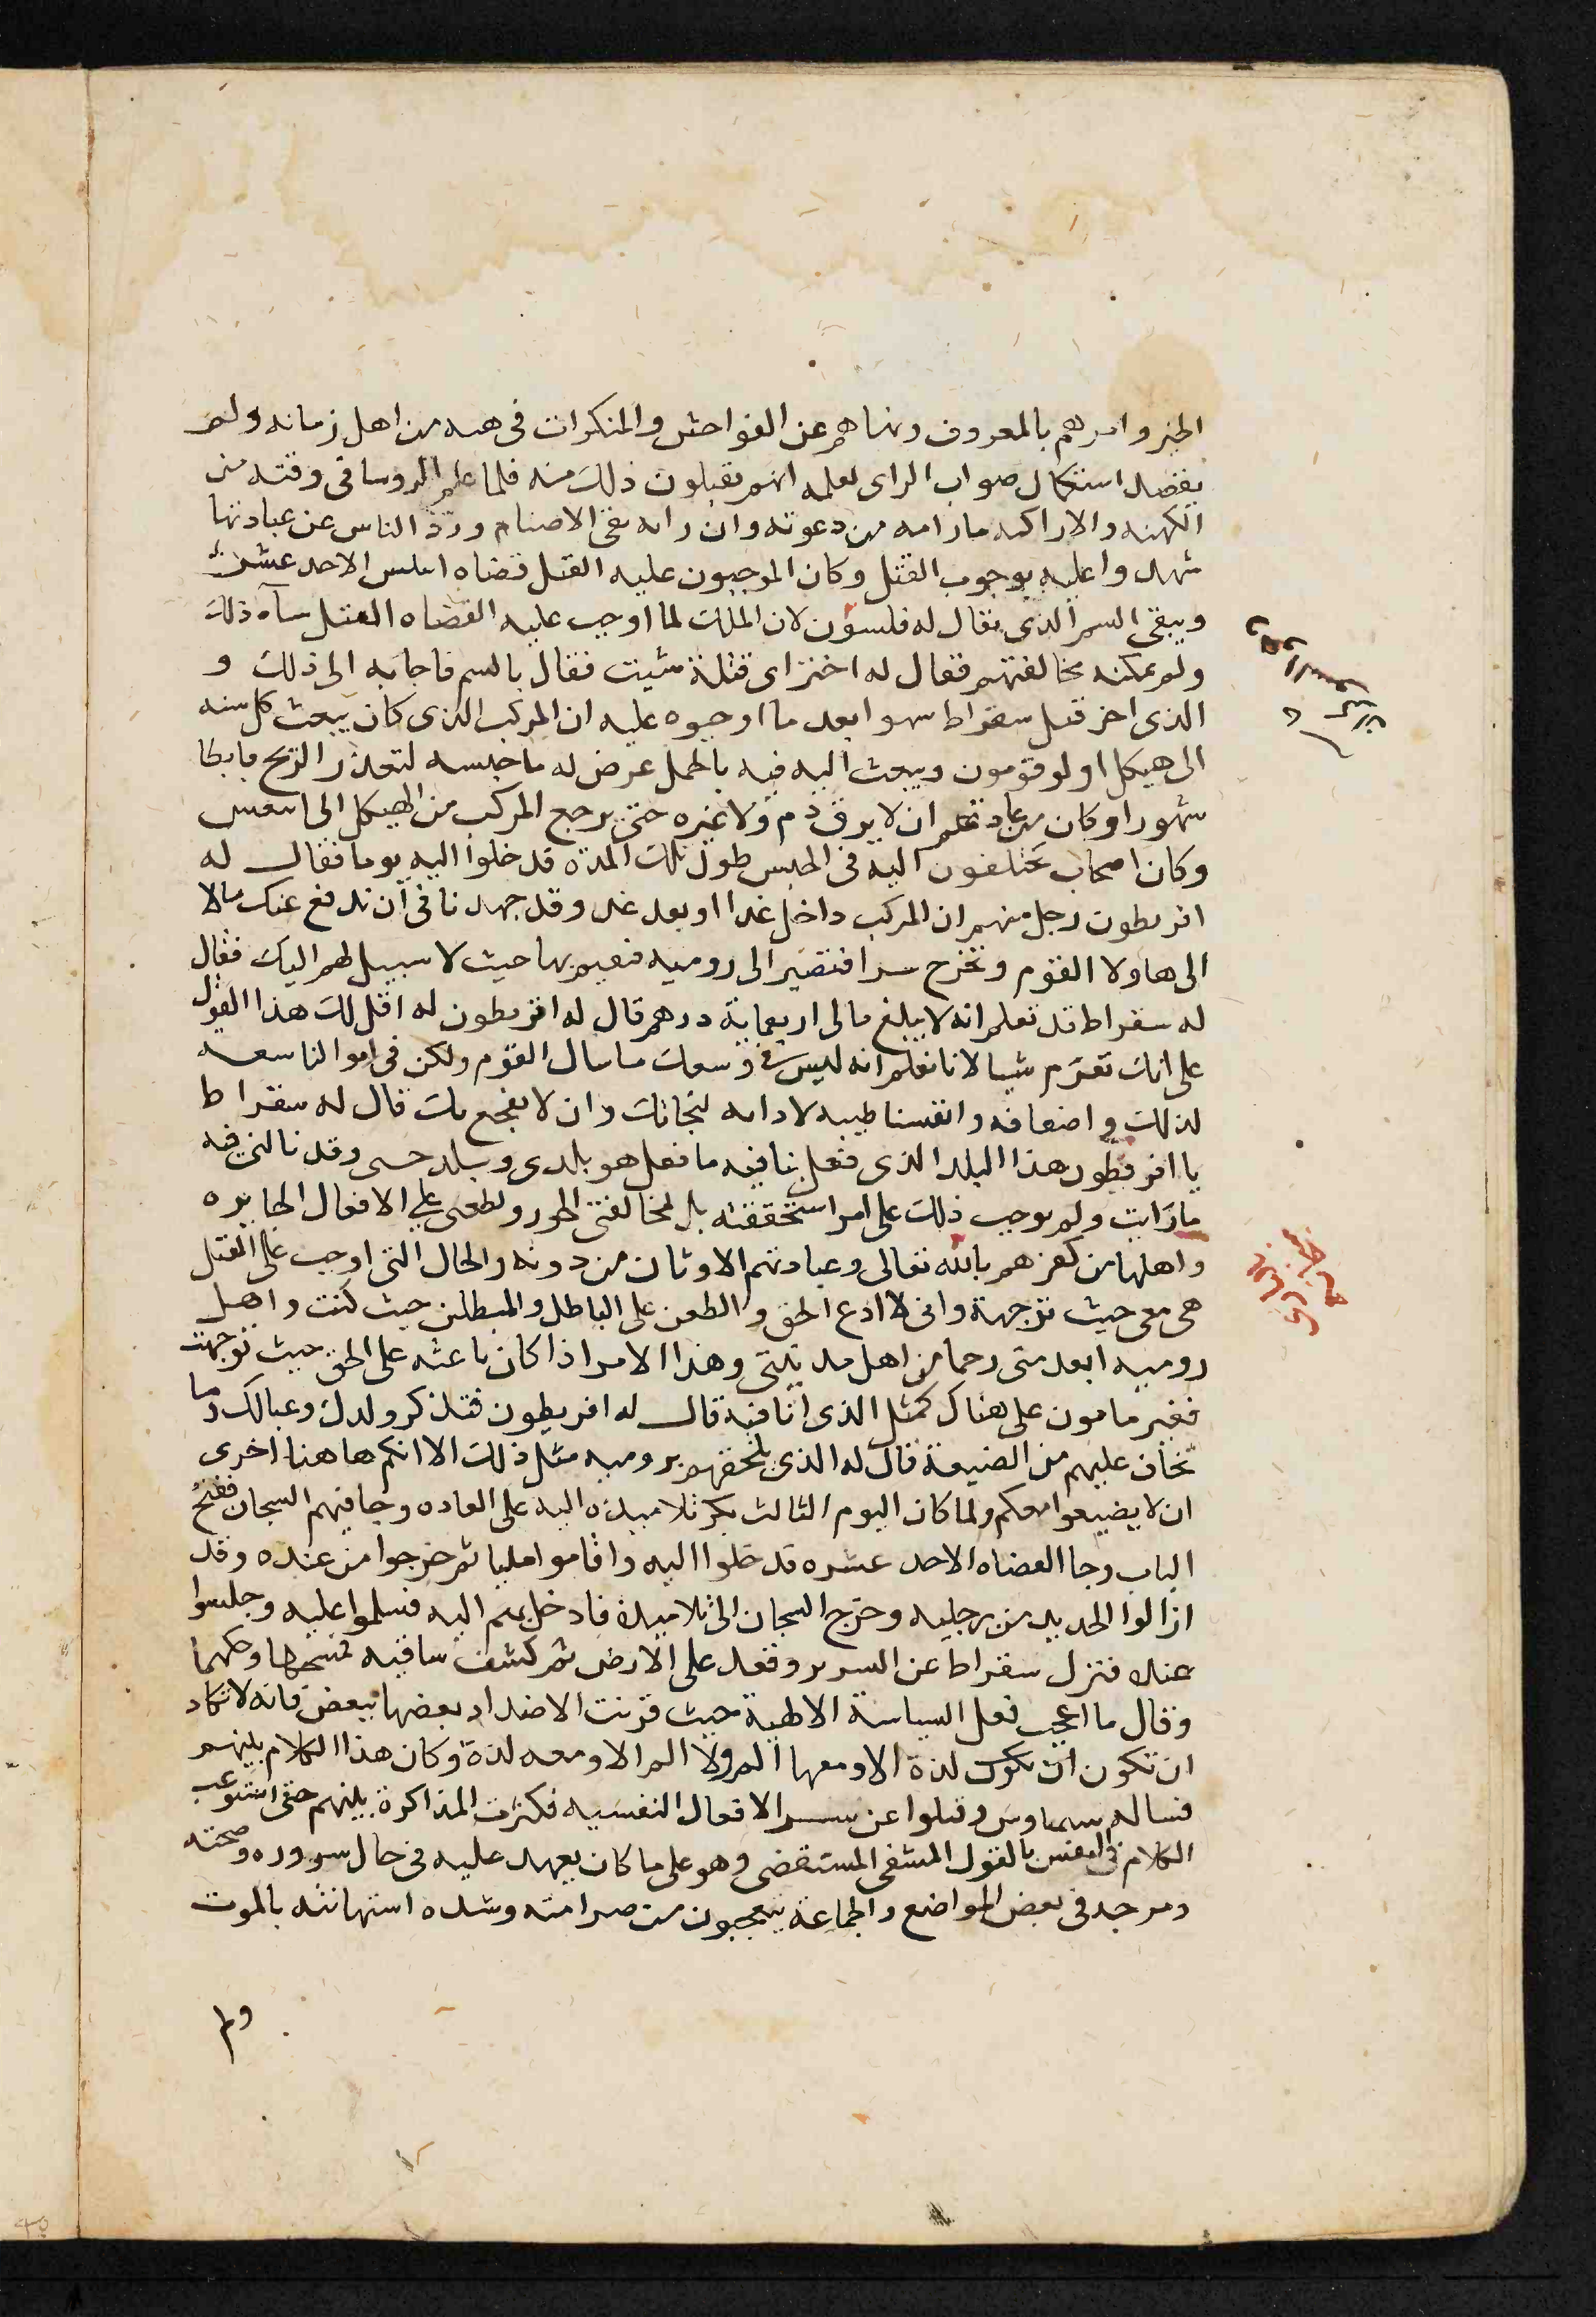 الخير وامرهم بالمعروف ونهاهم عن الفواحش والمنكرات في من اهل زمانه ولم
يقصد استكمال صواب الراى لعلمه انهم يقبلون ذلك منه فلما علم الروسا في وقته من
الكهنه والاراكنه ما رامه من دعوته وان رايه نفى الاصنام وردّ الناس عن عبادتها
شهدوا عليه بوجوب القتل وكان الموجبون عليه القتل قضاه الاحد عشر
ويبقى السم الذي يقال له لان الملك لما اوجب عليه القضاه القتل سآه ذلك
ولم يمكنه مخالفتهم فقال له اختر اى قتلة شيت فقال بالسم فاجابه الى ذلك و
الذي اخر قتل سقراط بعد ما اوجبوه عليه ان المركب الذي كان يبعث كل سنه
الى هيكل ويبعث اليه فيه بالحمل عرض له ما حبسه لتعذر الريح فابطا
شهورا وكان من عادتهم ان لا يرق دم ولا غيره حتى يرجع المركب من الهيكل الى
وكان اصحابه يختلفون اليه في الحبس طول تلك المدة فدخلوا اليه يوما فقال له
افريطون رجل منهم ان المركب داخل غدا او بعد غد وقد جهدنا في ان ندفع عنك مالا
الى هاولا القوم وتخرج سرا فتصير الى روميه فتقيم بها حيث لا سبيل لهم اليك فقال
له سقراط قد تعلم انه لا يبلغ مالى اربعماية درهم قال له افريطون لم اقل لك هذا القول
على انك تغرم شيا لانا نعلم انه ليس في وسعك ما سال القوم ولكن في اموالنا سعه
لذلك واضعافه وانفسنا طيبه لادايه لنجاتك وان لا نفجع بك قال له سقراط
يا افريطون هذا البلد الذي فعل بنا فيه ما فعل هو بلدى وبلد جنسى وقد نالنى فيه
ما رايت ولم يوجب ذلك على امر استحققته بل لمخالفتى الجور ولطعنى على الافعال الجايره
واهلها من كفرهم بالله تعالى وعبادتهم الاوثان من دونه والحال التى اوجب على القتل
هى معى حيث توجهة وانى لا ادع الحق والطعن على الباطل والمبطلين حيث كنت واهل
روميه ابعد منى رحما من اهل مدينتى وهذا الامر اذا كان باعثه على الحق حيث توجهت
فغير مامون على هناك كمثل الذي انا فيه قال له افريطون فتذكر ولدك وعيالك وما
تخاف عليهم من الضيعة قال له الذي يلحقهم بروميه مثل ذلك الا انكم هاهنا احرى
ان لا يضيعوا معكم ولما كان اليوم الثالث بكر تلاميذه اليه على العاده وجا فيهم السجان ففتح
الباب وجا القضاه الاحد عشره فدخلوا اليه واقاموا مليا ثم خرجوا من عنده وقد
ازالوا الحديد من رجليه وخرج السجان الى تلاميذه فادخل بهم اليه فسلموا عليه وجلسوا
عنده فنزل سقراط عن السرير وقعد على الارض ثم كشف ساقيه فمسحها وحكهما
وقال ما اعجب فعل السياسة الالهية حيث قرنت الاضداد بعضها ببعض فانه لا تكاد
ان تكون ان تكون لذة الا ومعها الم ولا الم الا ومعه لذة وكان هذا الكلام بينهم
فساله سيماوس عن الافعال النفسيه فكثرت المذاكرة بينهم حتى استوعب
الكلام في النفس بالقول المتقن المستقصى وهو على ما كان يعهد عليه في حال سروره وصحته
ومرحه في بعض المواضع والجماعة يتعجبون من صرامته وشده استهانته بالموت